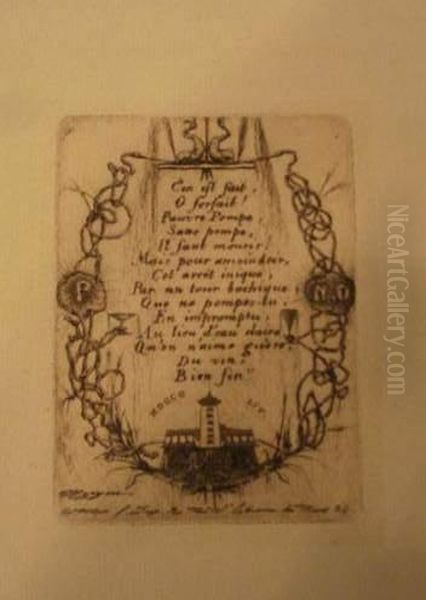 C'en est fait,
O forfait!
Pauvre Pompe,
Sans pompe,
Il faut mourir!
Mais pour amoindrir,
Cet arrêt inique,
Par un tour bachique,
Que ne pompes-tu,
En impromptu,
Au lieu d'eau claire
Qu'on n'aime guère,
Du vin?
Bien fin!!
P
N D
MDCCC LIV
Meryon
NiceArtGallery.com